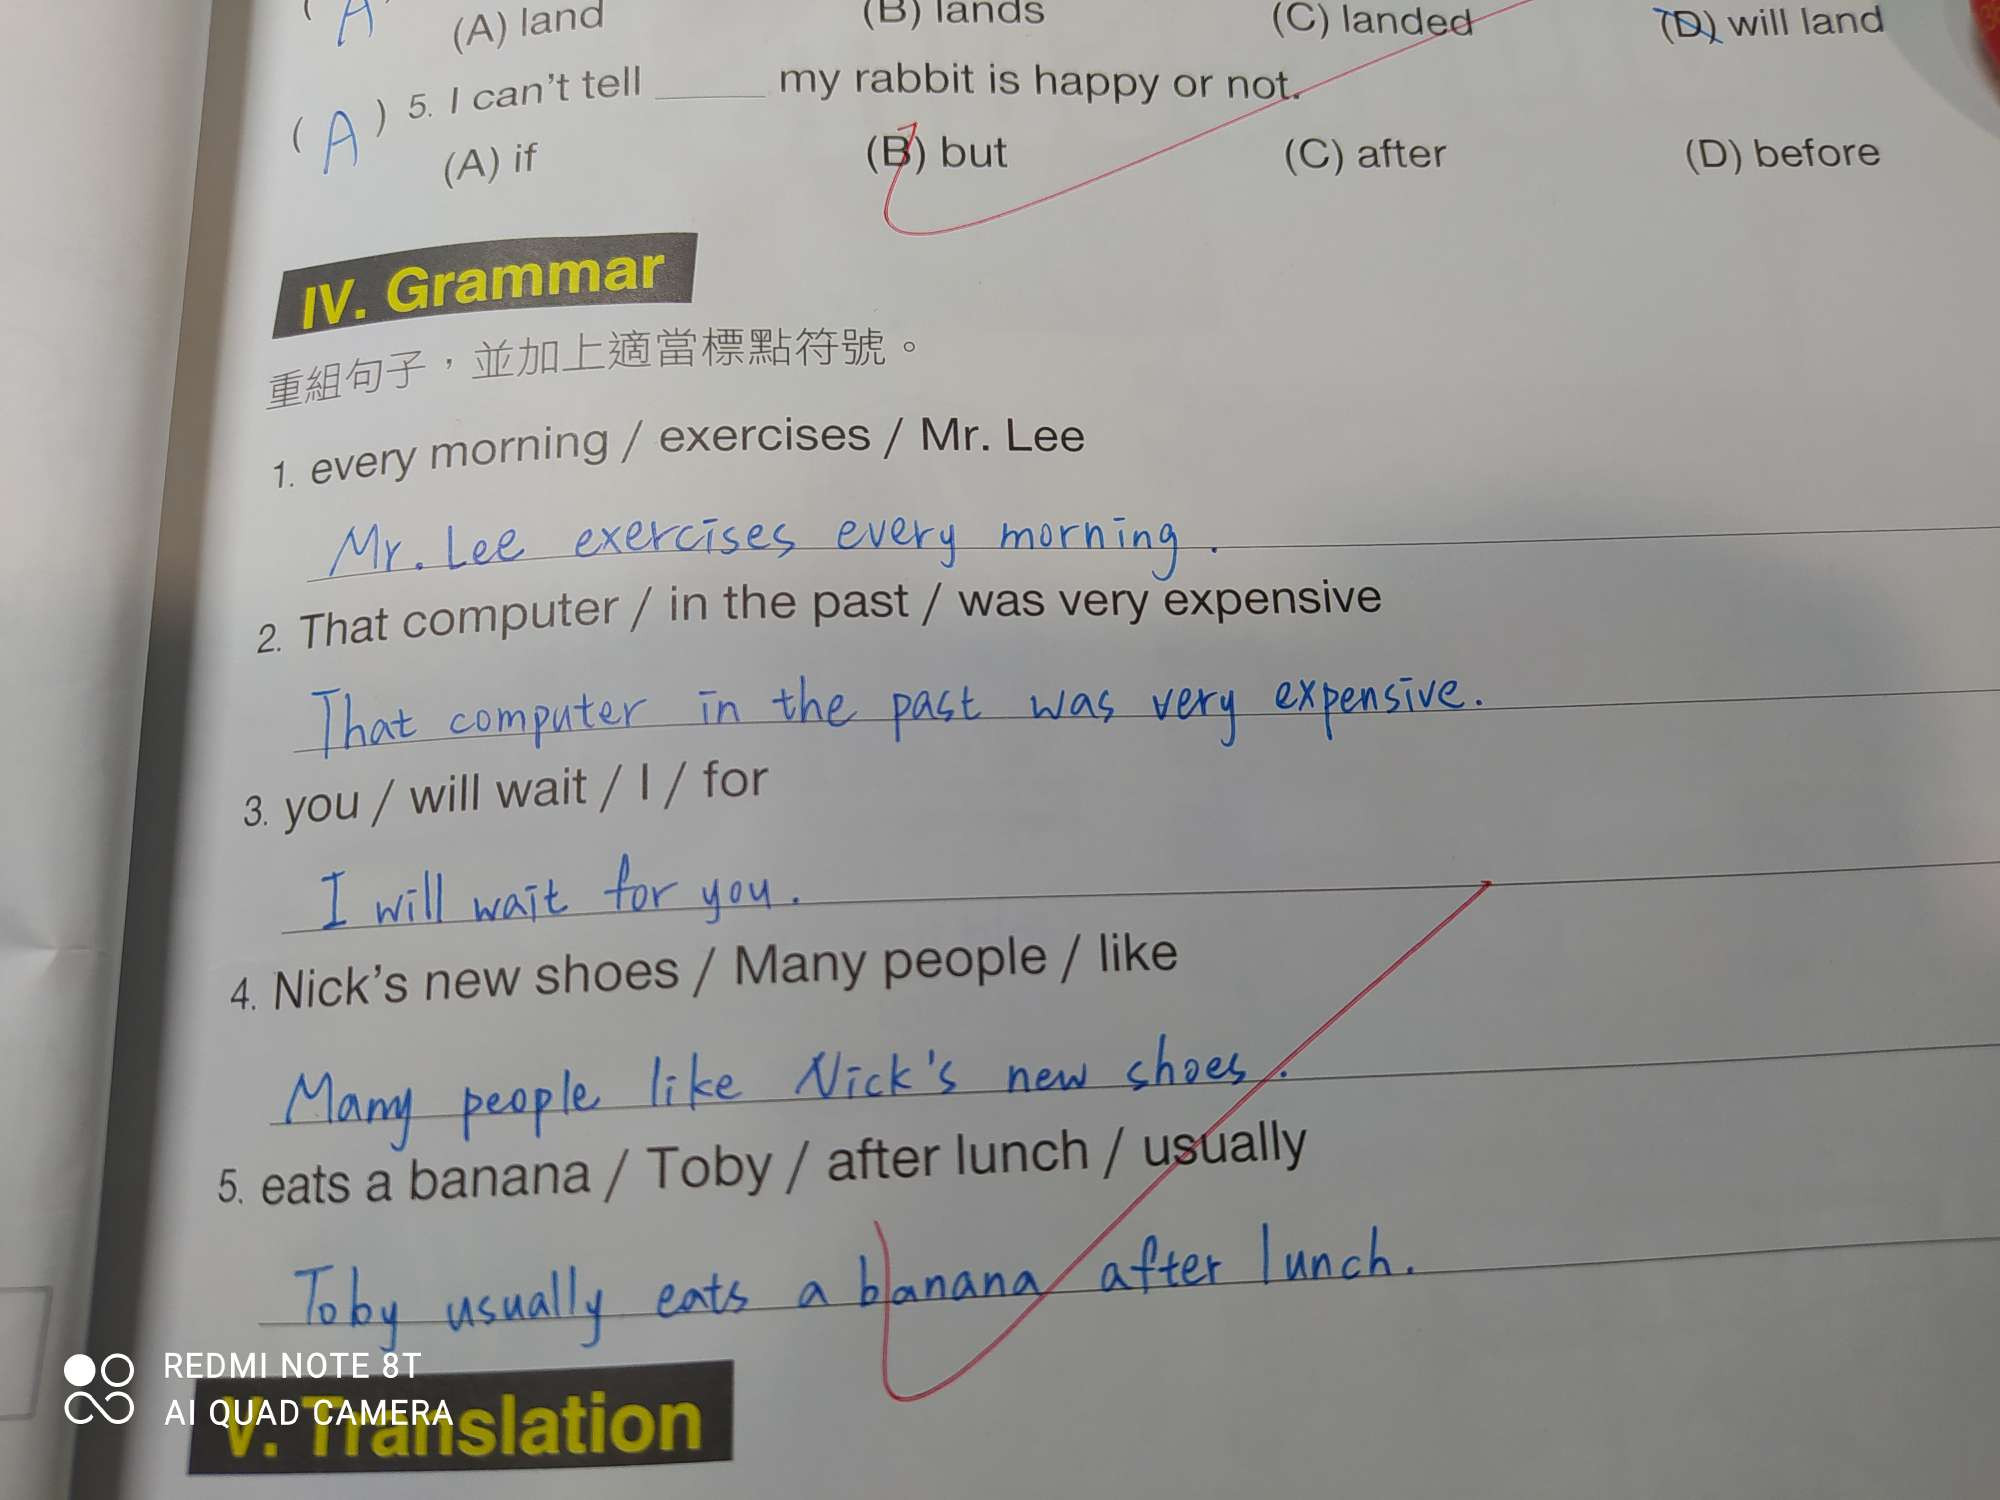 ( A (A) land (B) lands (C) landed (D) will land
( A ) 5. I can't tell _____ my rabbit is happy or not.
(A) if (B) but (C) after (D) before
IV. Grammar
重組句子，並加上適當標點符號。
1. every morning / exercises / Mr. Lee
Mr. Lee exercises every morning.
2. That computer / in the past / was very expensive
That computer in the past was very expensive.
3. you / will wait / I / for
I will wait for you.
4. Nick's new shoes / Many people / like
Many people like Nick's new shoes.
5. eats a banana / Toby / after lunch / usually
Toby usually eats a banana after lunch.
REDMI NOTE 8T
AI QUAD CAMERA
V. Translation